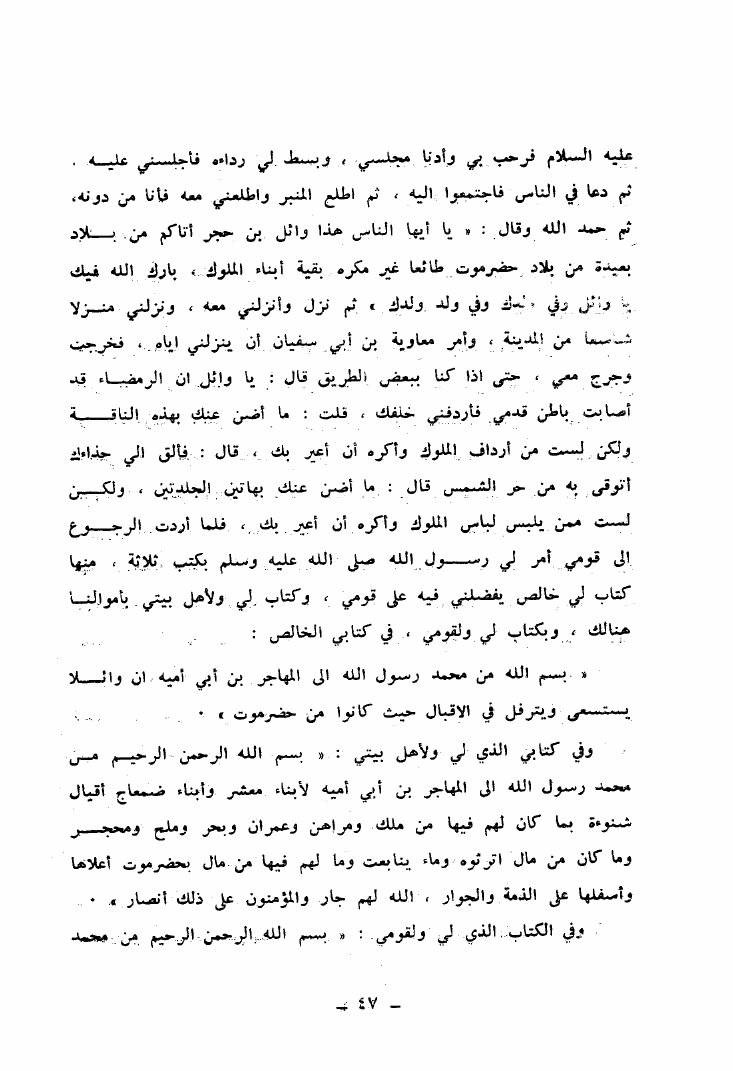 عليه السلام فرحب بي وأدنا مجلسي ، وبسط لي رداءه فأجلسني عليه .
ثم دعا في الناس فاجتمعوا اليه ، ثم اطلع المنبر واطلعني معه فأنا من دونه،
ثم حمد الله وقال : « يا أيها الناس هذا وائل بن حجر أتاكم من بلاد
بعيدة من بلاد حضرموت طائعا غير مكره بقية أبناء الملوك ، بارك الله فيك
يا وائل وفي ولدك وفي ولد ولدك » ثم نزل وأنزلني معه ، ونزلني منزلا
شاسعا من المدينة ، وأمر معاوية بن أبي سفيان أن ينزلني اياه ، فخرجت
وجرج معي ، حتى اذا كنا ببعض الطريق قال : يا وائل ان الرمضاء قد
أصابت باطن قدمي فأردفني خلفك ، قلت : ما أضن عنك بهذه الناقة
ولكن لست من أرداف الملوك وأكره أن أعير بك ، قال : فألق الي حذاءك
أتوقى به من حر الشمس قال : ما أضن عنك بهاتين الجلدتين ، ولكن
لست ممن يلبس لباس الملوك وأكره أن أعير بك ، فلما أردت الرجوع
الى قومي أمر لي رسول الله صلى الله عليه وسلم بكتب ثلاثة ، منها
كتاب لي خالص يفضلني فيه على قومي ، وكتاب لي ولأهل بيتي بأموالنا
هنالك ، وبكتاب لي ولقومي ، في كتابي الخالص :
« بسم الله من محمد رسول الله الى المهاجر بن أبي أميه ان وائلا
يستسعى ويترفل في الاقبال حيث كانوا من حضرموت » ٠
وفي كتابي الذي لي ولأهل بيتي : « بسم الله الرحمن الرحيم من
محمد رسول الله الى المهاجر بن أبي أميه لأبناء معشر وأبناء ضمعاج أقيال
شنوءة بما كان لهم فيها من ملك ومراهن وعمران وبحر وملح ومحجر
وما كان من مال اترثوه وماء ينابعت وما لهم فيها من مال بحضرموت أعلاها
وأسفلها على الذمة والجوار ، الله لهم جار والمؤمنون على ذلك أنصار » ٠
وفي الكتاب الذي لي ولقومي : « بسم الله الرحمن الرحيم من محمد
ـ ٤٧ ـ